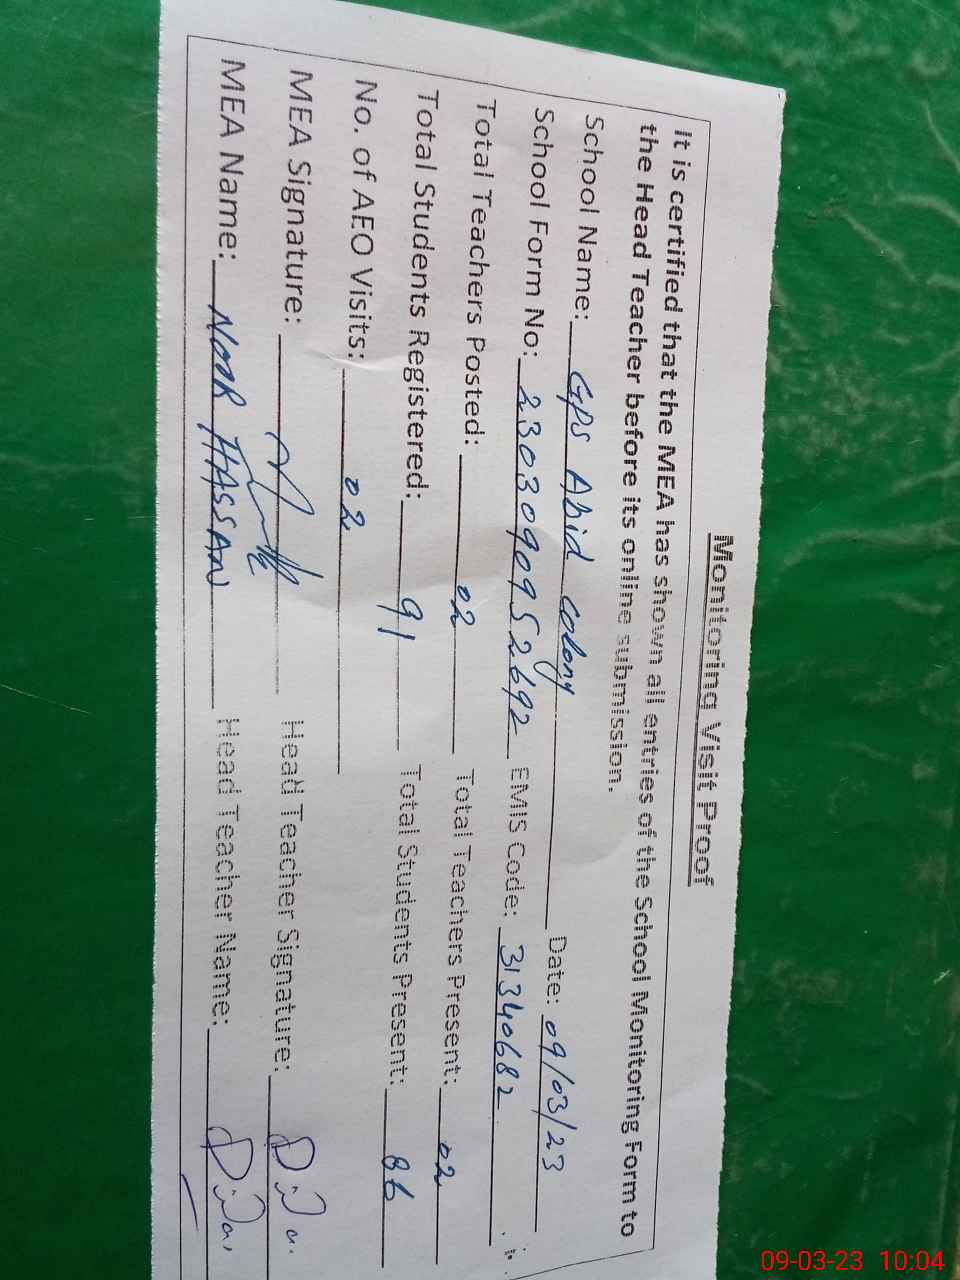 Monitoring Visit Proof
It is certified that the MEA has shown all entries of the School Monitoring Form to
the Head Teacher before its online submission.
School Name: GPS Abid colony Date: 09/03/23
School Form No: 2303090952692 EMIS Code: 31340682
Total Teachers Posted: 02 Total Teachers Present: 02
Total Students Registered: 91 Total Students Present: 86
No. of AEO Visits: 02
MEA Signature: Head Teacher Signature:
MEA Name: NOOR HASSAN Head Teacher Name:
09-03-23 10:04